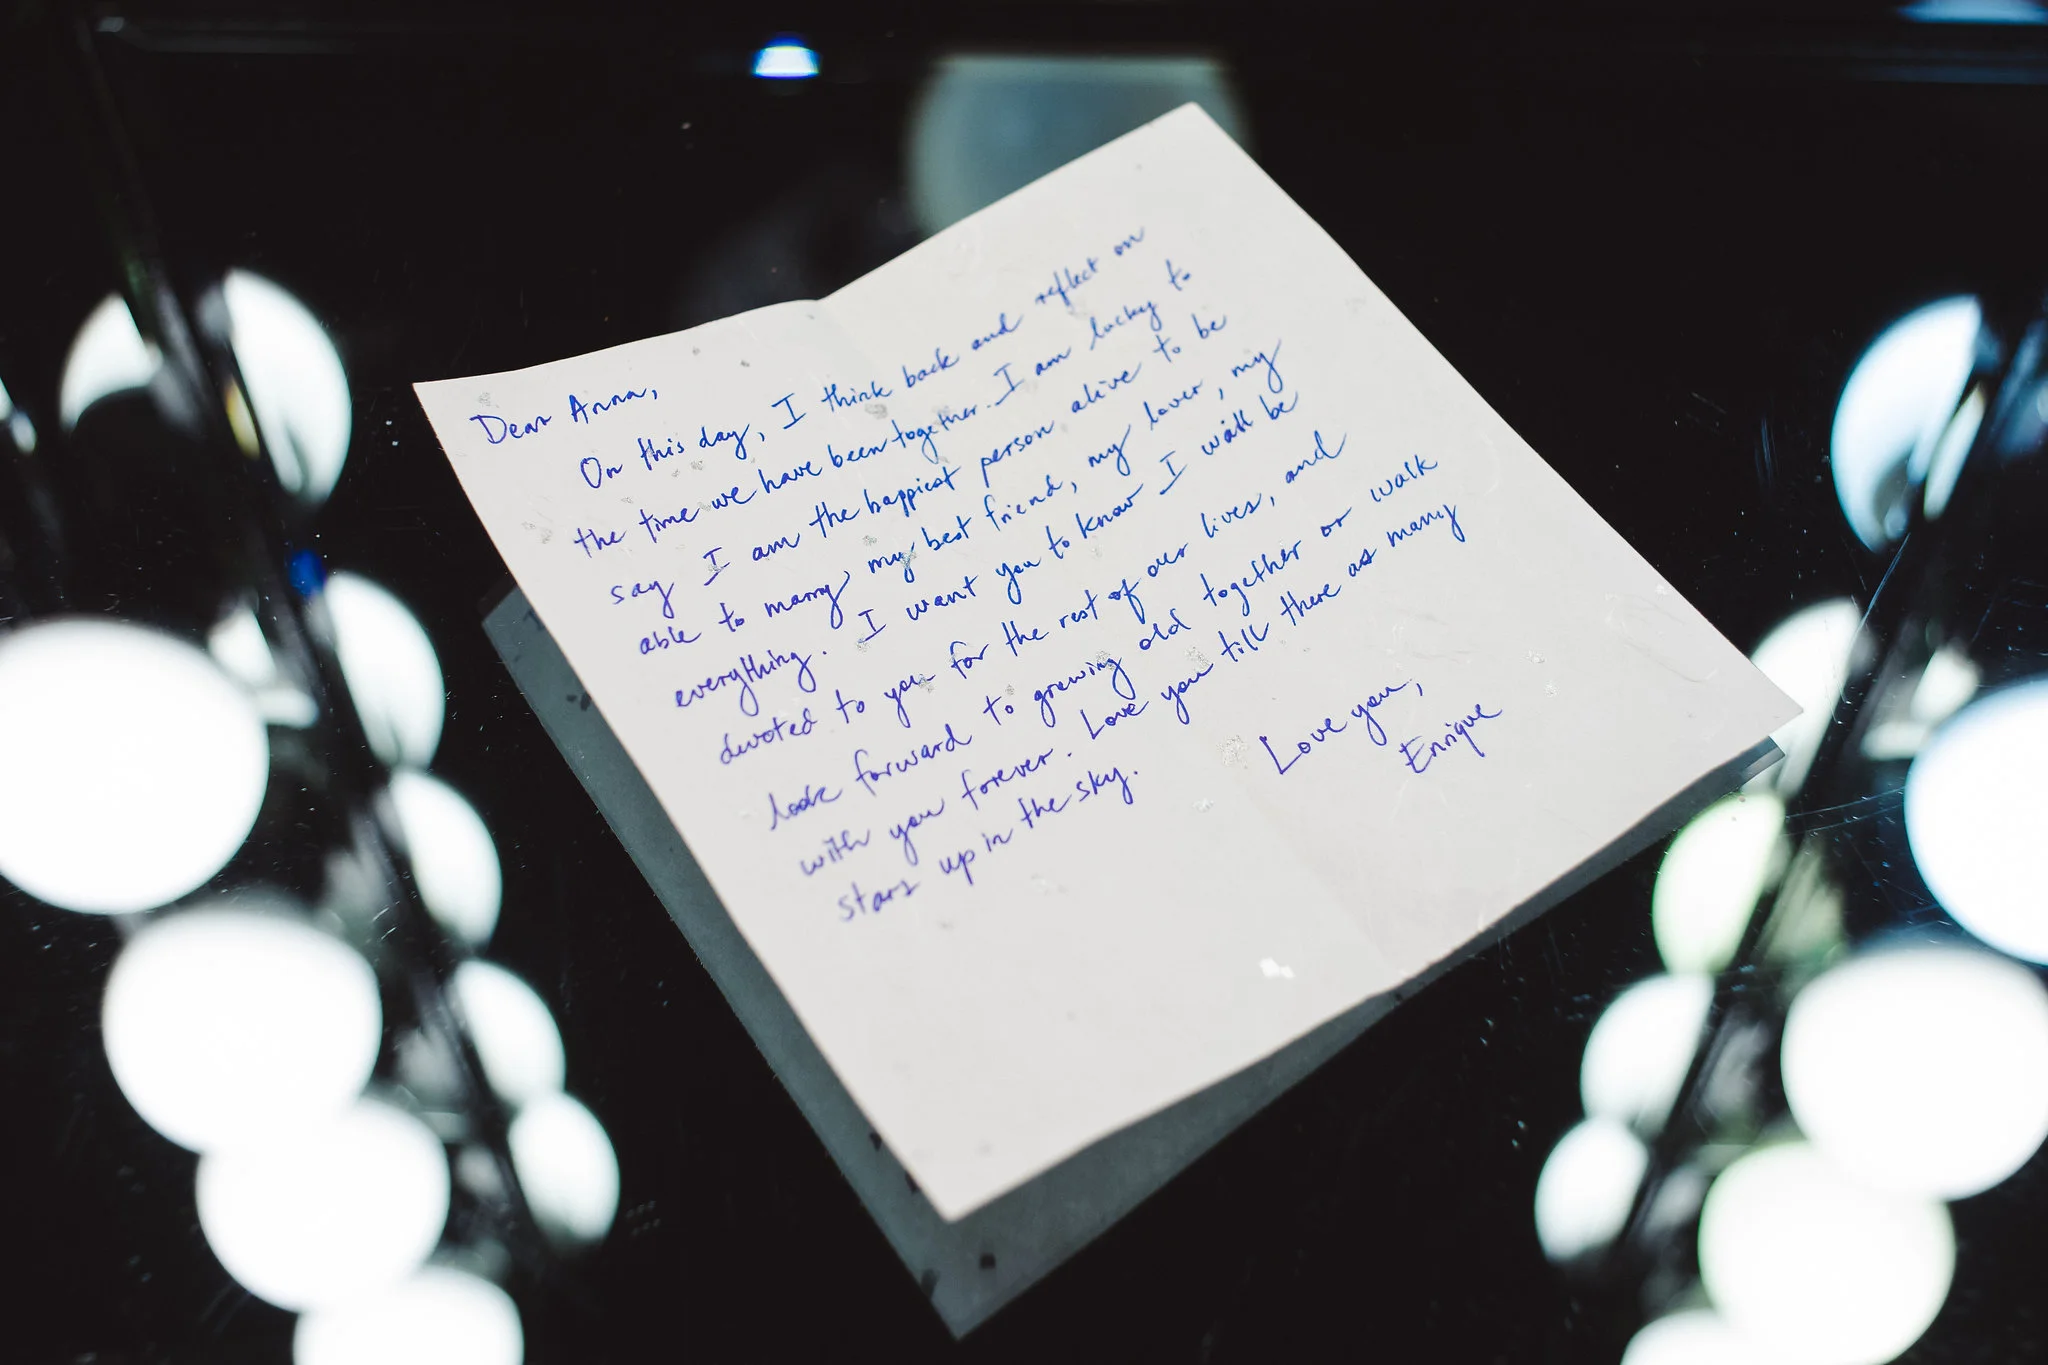 Dear Anna,
On this day, I think back and reflect on
the time we have been together. I am lucky to
say I am the happiest person alive to be
able to marry my best friend, my lover, my
everything. I want you to know I will be
devoted to you for the rest of our lives, and
look forward to growing old together or walk
with you forever. Love you till there as many
stars up in the sky.
Love you,
Enrique